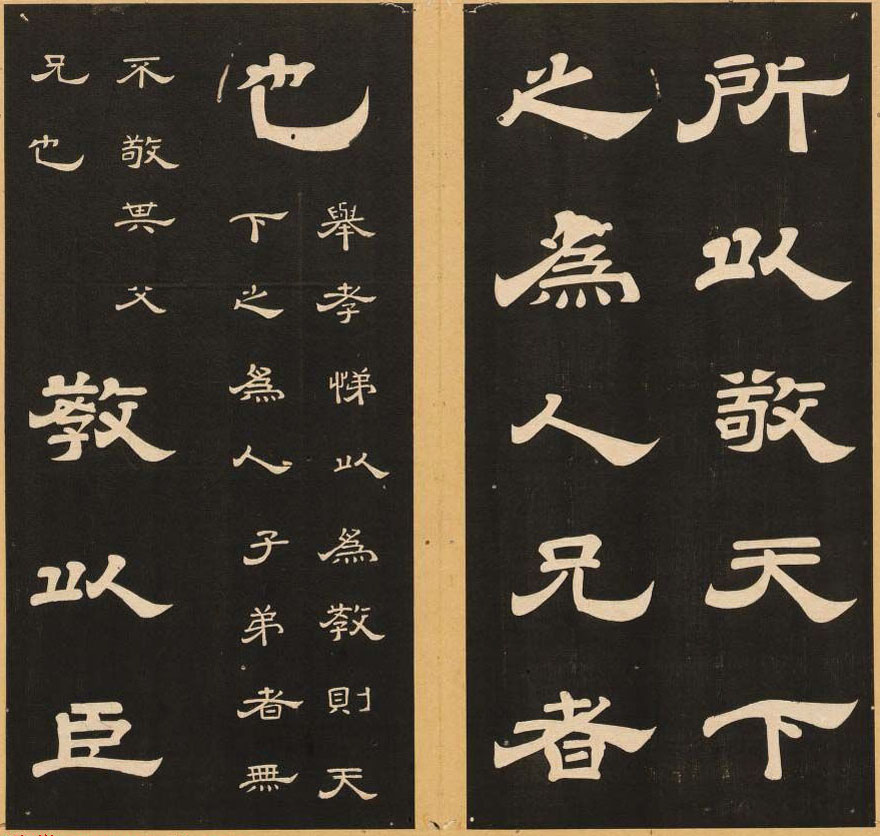 所以敬天下
之爲人兄者
也
舉孝悌以爲教則天
下之爲人子弟者無
不敬其父
兄也
教以臣